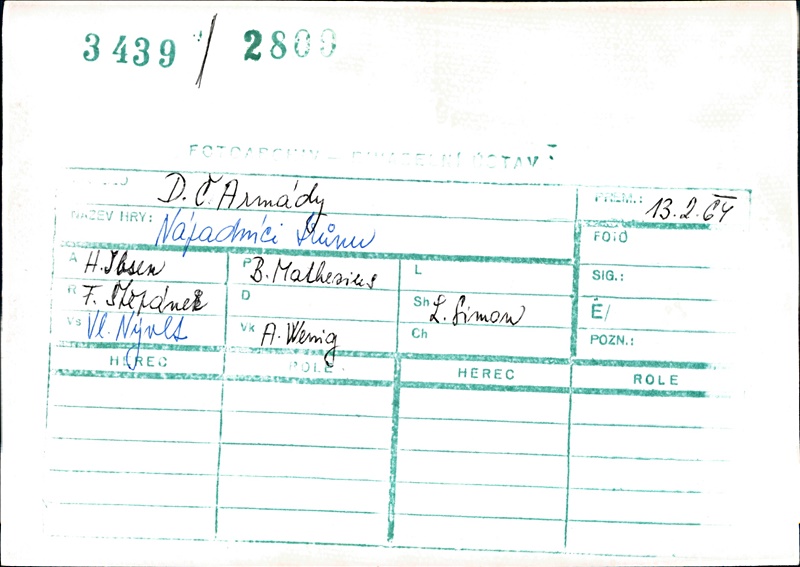 3439 / 2809
FOTOARCHIV – DIVADELNÍ ÚSTAV
D. Č. Armády
PREM.: 13.2.64
NÁZEV HRY: Nápadníci trůnu
FOTO
A H. Ibsen
P B. Mathesius
L
SIG.:
R F. Štěpánek
D
Sh L. Simon
É/
Vs Vl. Nývlt
Vk A. Wenig
Ch
POZN.:
HEREC ROLE HEREC ROLE